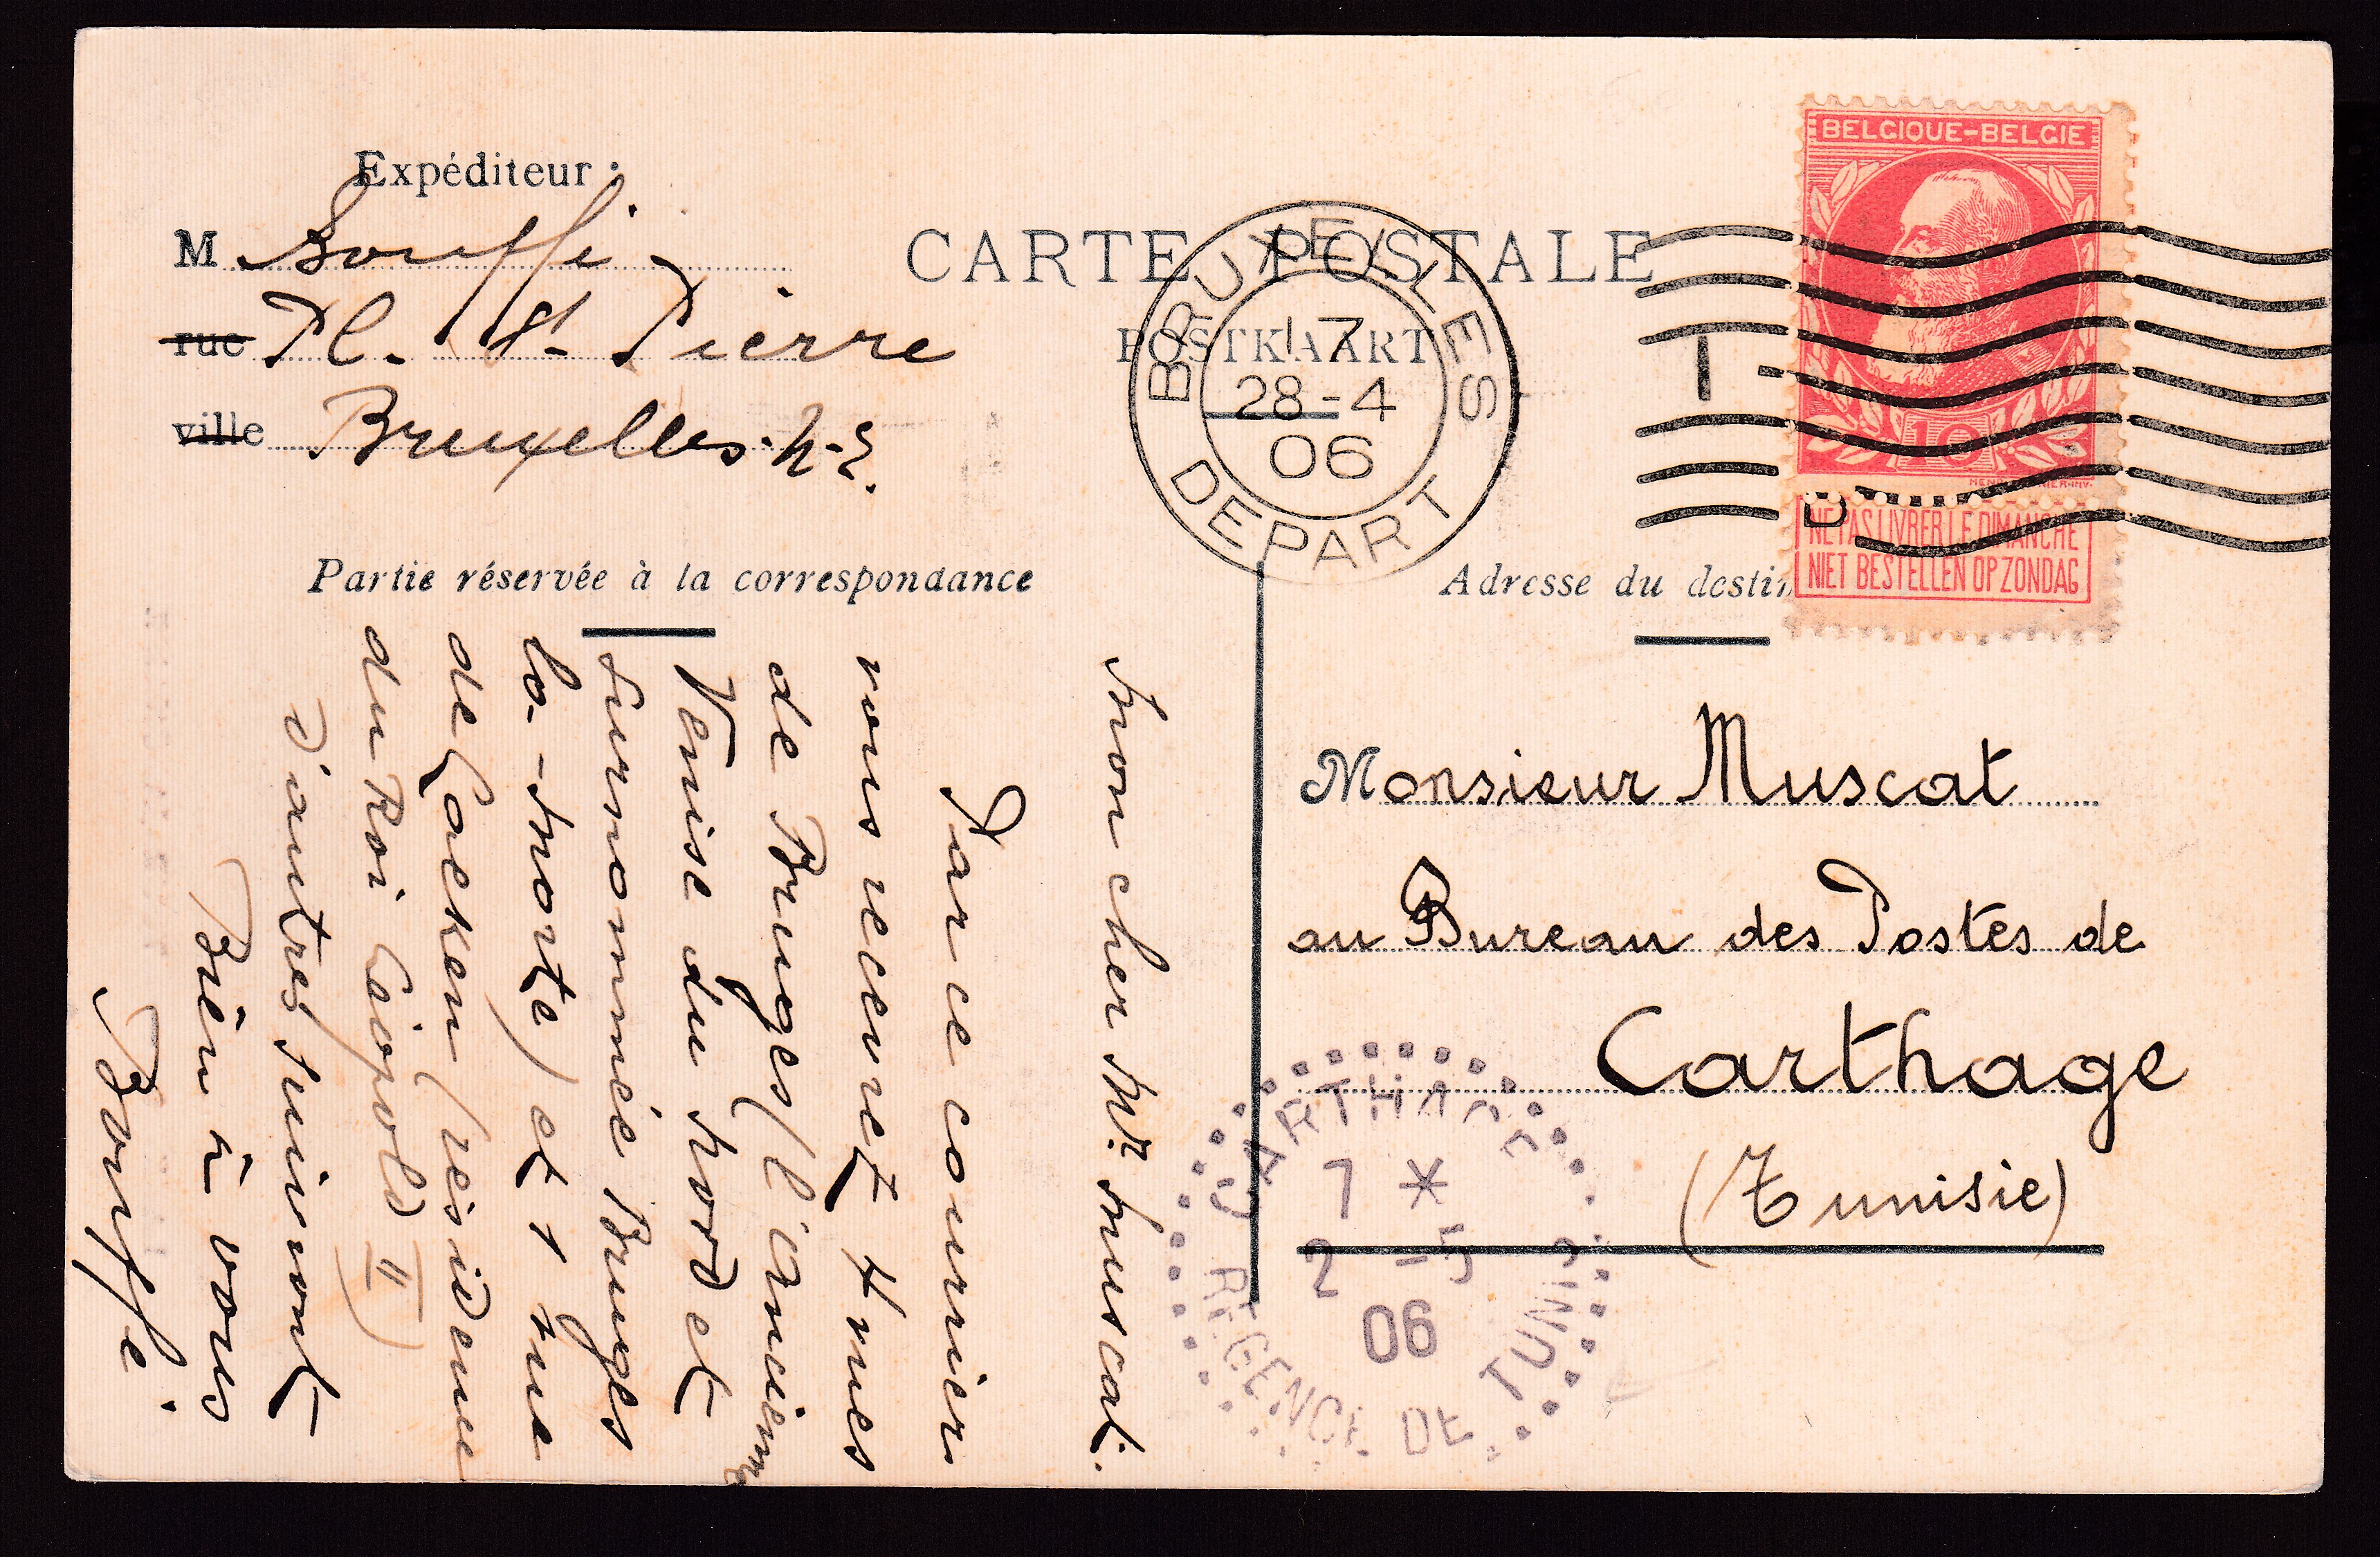 Expéditeur :
M Bouffi
rue Pl. St Pierre
ville Bruxelles.
CARTE POSTALE
POSTKAART
BRUXELLES
17
28-4
06
DEPART
BELGIQUE-BELGIE
10
NE PAS LIVRER LE DIMANCHE
NIET BESTELLEN OP ZONDAG
Partie réservée à la correspondance
Adresse du destin
Mon cher Mr Muscat.
Par ce courrier
vous recevrez 4 vues
de Bruges (l'ancienne
Venise du Nord et
surnommée Bruges
la-Morte) et 1 vue
de Laeken (résidence
du Roi Léopold II)
D'autres suivront
Bien à vous
Bouffi.
Monsieur Muscat
au Bureau des Postes de
Carthage
(Tunisie)
CARTHAGE
7 *
2 -5
06
REGENCE DE TUNIS